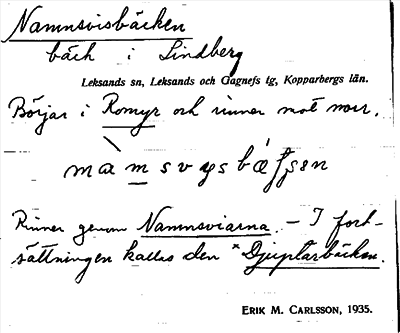 Namnsvisbäcken
bäck i Lindberg
Leksands sn, Leksands och Gagnefs tg, Kopparbergs län.
Börjar i Romyr och rinner mot norr.
Rinner genom Namnsviarna. – I fort-
sättningen kallas den Djuptärbäcken.
ERIK M. CARLSSON, 1935.